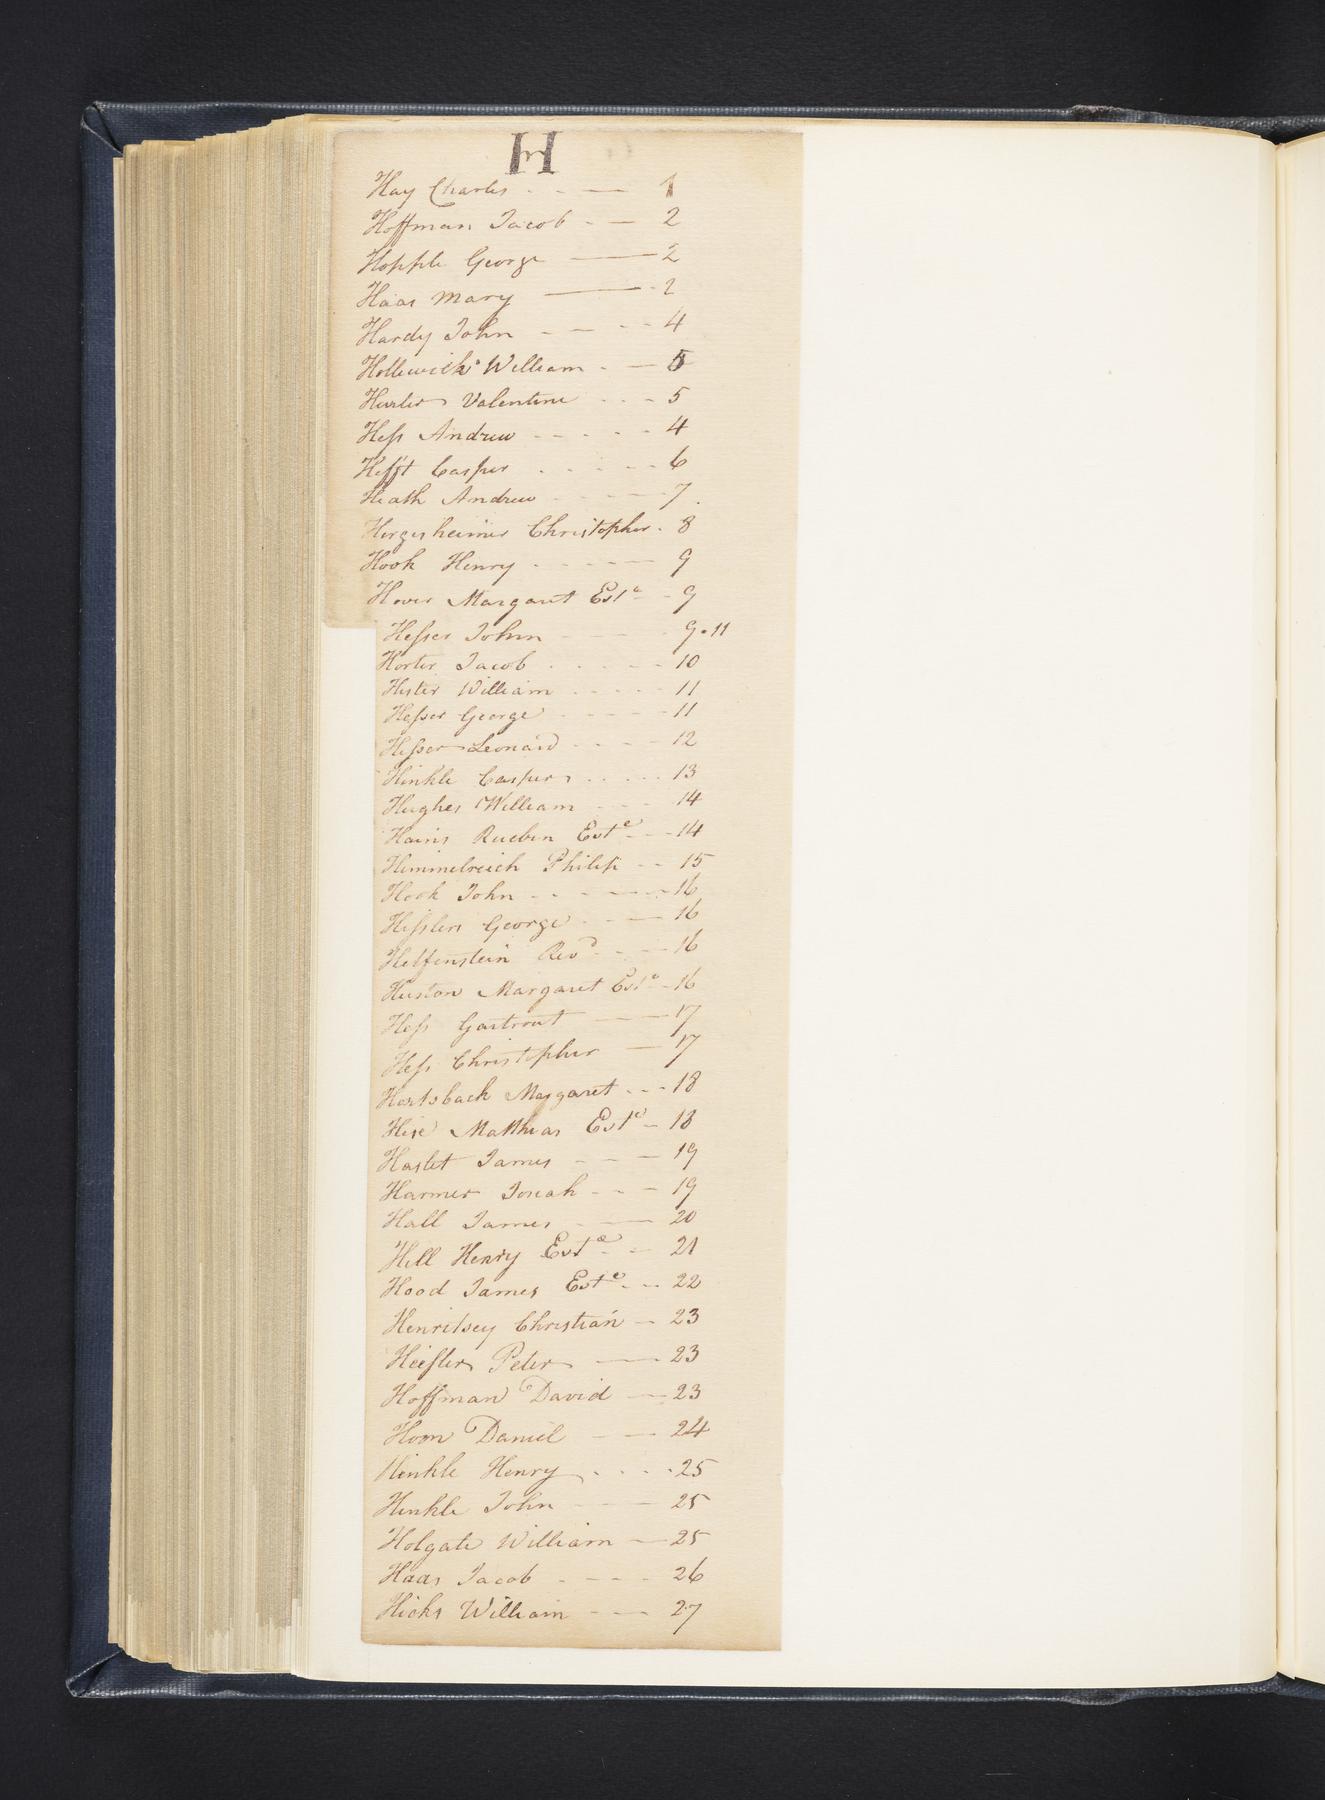 H
Hay Charles - - — 1
Hoffman Jacob - — 2
Hopple George — 2
Haas Mary — - 2
Hardy John - — - - 4
William - — 5
Valentine - - - 5
Hess Andrew - - - - - 4
Hefft Casper - - - - - 6
Heath Andrew - - - - 7
Hergesheimer Christopher - 8
Hook Henry - - - - - 9
Hover Margaret Est.e - 9
Hesser John - - - - 9.11
Horter Jacob - - - - - 10
Hister William - - - - - 11
Hesser George - - - - - 11
Hesser Leonard - - - - 12
Hinkle Casper - - - - - 13
Hughes William - - - 14
Hains Rueben Est.e - - - 14
Himmelreich Philip - - 15
Hook John - - - — - 16
George - - — 16
Helfenstein Revd - - — 16
Huston Margaret Est.e - 16
Hess — 17
Hess Christopher — 17
Hartsback Margaret - - - 18
Hise Matthias Est.e - 18
Haslet James - - — 19
Harmer Josiah - - - 19
Hall James - — 20
Hill Henry Est.e - - 21
Hood James Est.e - - 22
Henritsey Christian — 23
Peter — 23
Hoffman David — 23
Hoon Daniel - — 24
Hinkle Henry - - - - 25
Hinkle John - - - - 25
Holgate William — 25
Haas Jacob - - - - 26
Hicks William - - - 27